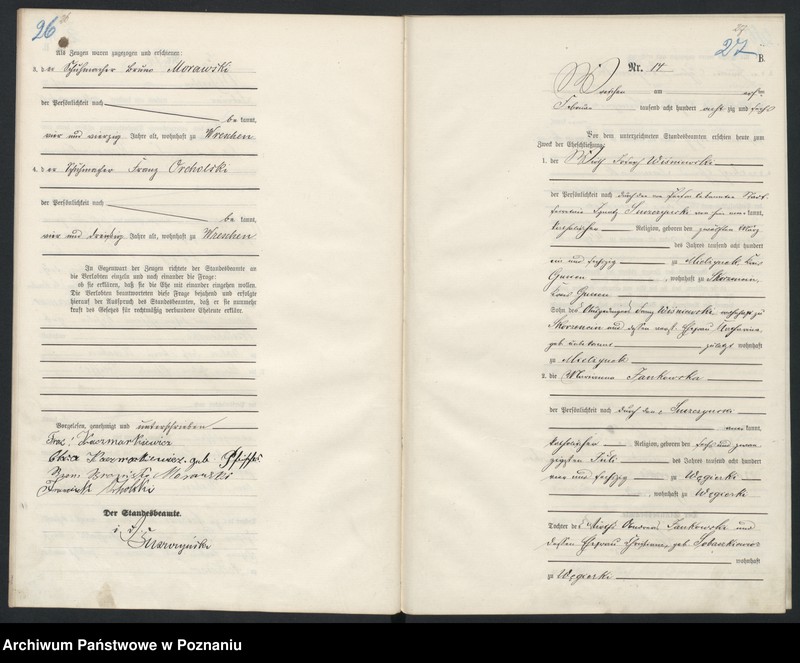 26
Als Zeugen waren zugezogen und erschienen:
3. der Schuhmacher Bruno Morawski
der Persönlichkeit nach
be kannt,
vier und vierzig Jahre alt, wohnhaft zu Wreschen
4. der Schuhmacher Franz Orcholski
der Persönlichkeit nach
be kannt,
vier und dreißig Jahre alt, wohnhaft zu Wreschen
In Gegenwart der Zeugen richtete der Standesbeamte an
die Verlobten einzeln und nach einander die Frage:
ob sie erklären, daß sie die Ehe mit einander eingehen wollen.
Die Verlobten beantworteten diese Frage bejahend und erfolgte
hierauf der Ausspruch des Standesbeamten, daß er sie nunmehr
kraft des Gesetzes für rechtmäßig verbundene Eheleute erkläre.
Vorgelesen, genehmigt und unterschrieben
Kaczmarkiewicz
Kaczmarkiewicz geb
Morawski
Der Standesbeamte.
i. V.
27
27
B.
Nr. 14
Wreschen am
Februar tausend acht hundert acht zig und sechs
Vor dem unterzeichneten Standesbeamten erschien heute zum
Zweck der Eheschließung:
1. der Wirth Joseph Wisniewski
der Persönlichkeit nach durch den von Person bekannten
Ignatz kannt,
katholischer Religion, geboren den zwölften März
des Jahres tausend acht hundert
ein und sechzig zu Mielzynek, Kreis
Gnesen, wohnhaft zu Skorzencin,
Kreis Gnesen
Sohn des Franz Wisniewski wohnhaft zu
Skorzencin und dessen Ehefrau Katharina
geb. unbekannt zuletzt wohnhaft
zu Mielzynek
2. die Marianna Jankowska
der Persönlichkeit nach durch den
kannt,
katholischer Religion, geboren den sechs und zwan
zigsten Juli des Jahres tausend acht hundert
und sechzig zu Wegierki
, wohnhaft zu Wegierki
Tochter des Wirths Jankowski und
dessen Ehefrau Christiana, geb
wohnhaft
zu Wegierki
Archiwum Państwowe w Poznaniu